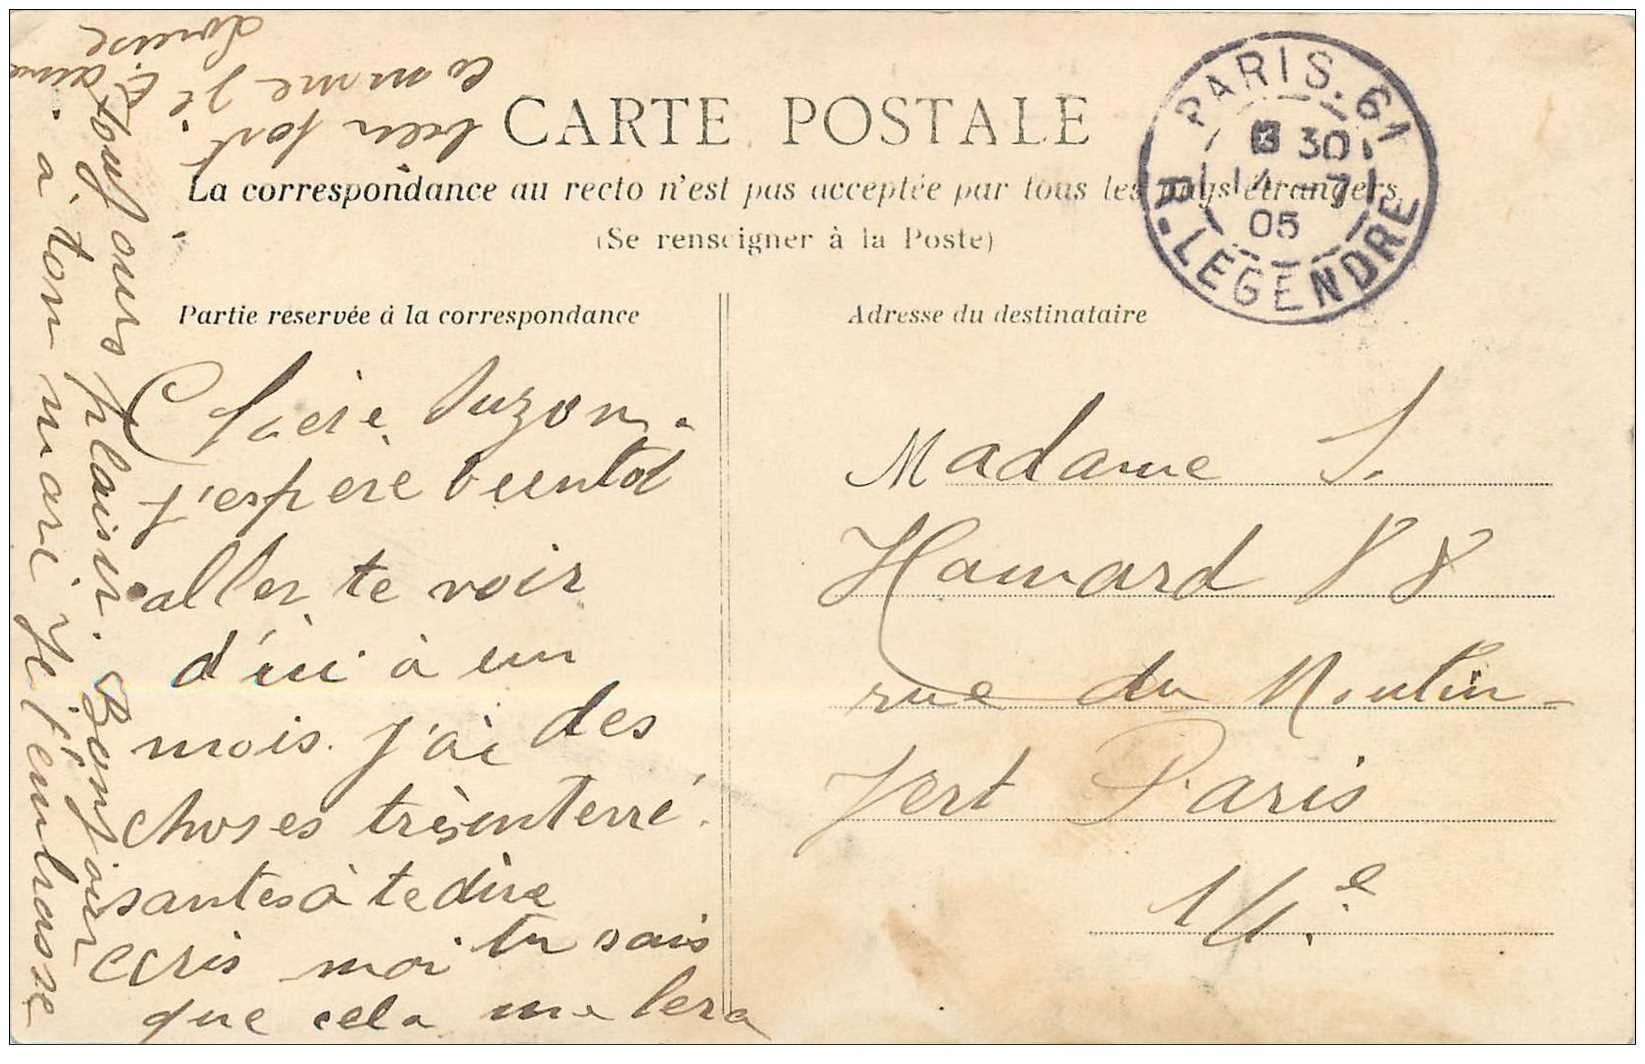 CARTE POSTALE
La correspondance au recto n'est pas acceptée par tous les pays étrangers
(Se renseigner à la Poste)
PARIS. 61
30
14 - 7
05
R. LEGENDRE
Partie réservée à la correspondance
Adresse du destinataire
Chère Suzon.
j'espère bientot
aller te voir
d'ici à un
mois. j'ai des
choses très interré.
santes à te dire
ecris moi tu sais
que cela me fera
toujours plaisir. Bonjour
à ton mari. Je t'embrasse
bien fort
comme je t'aime
Louise
Madame S.
Hamard 88
rue du Moulin-
Vert Paris
14.e